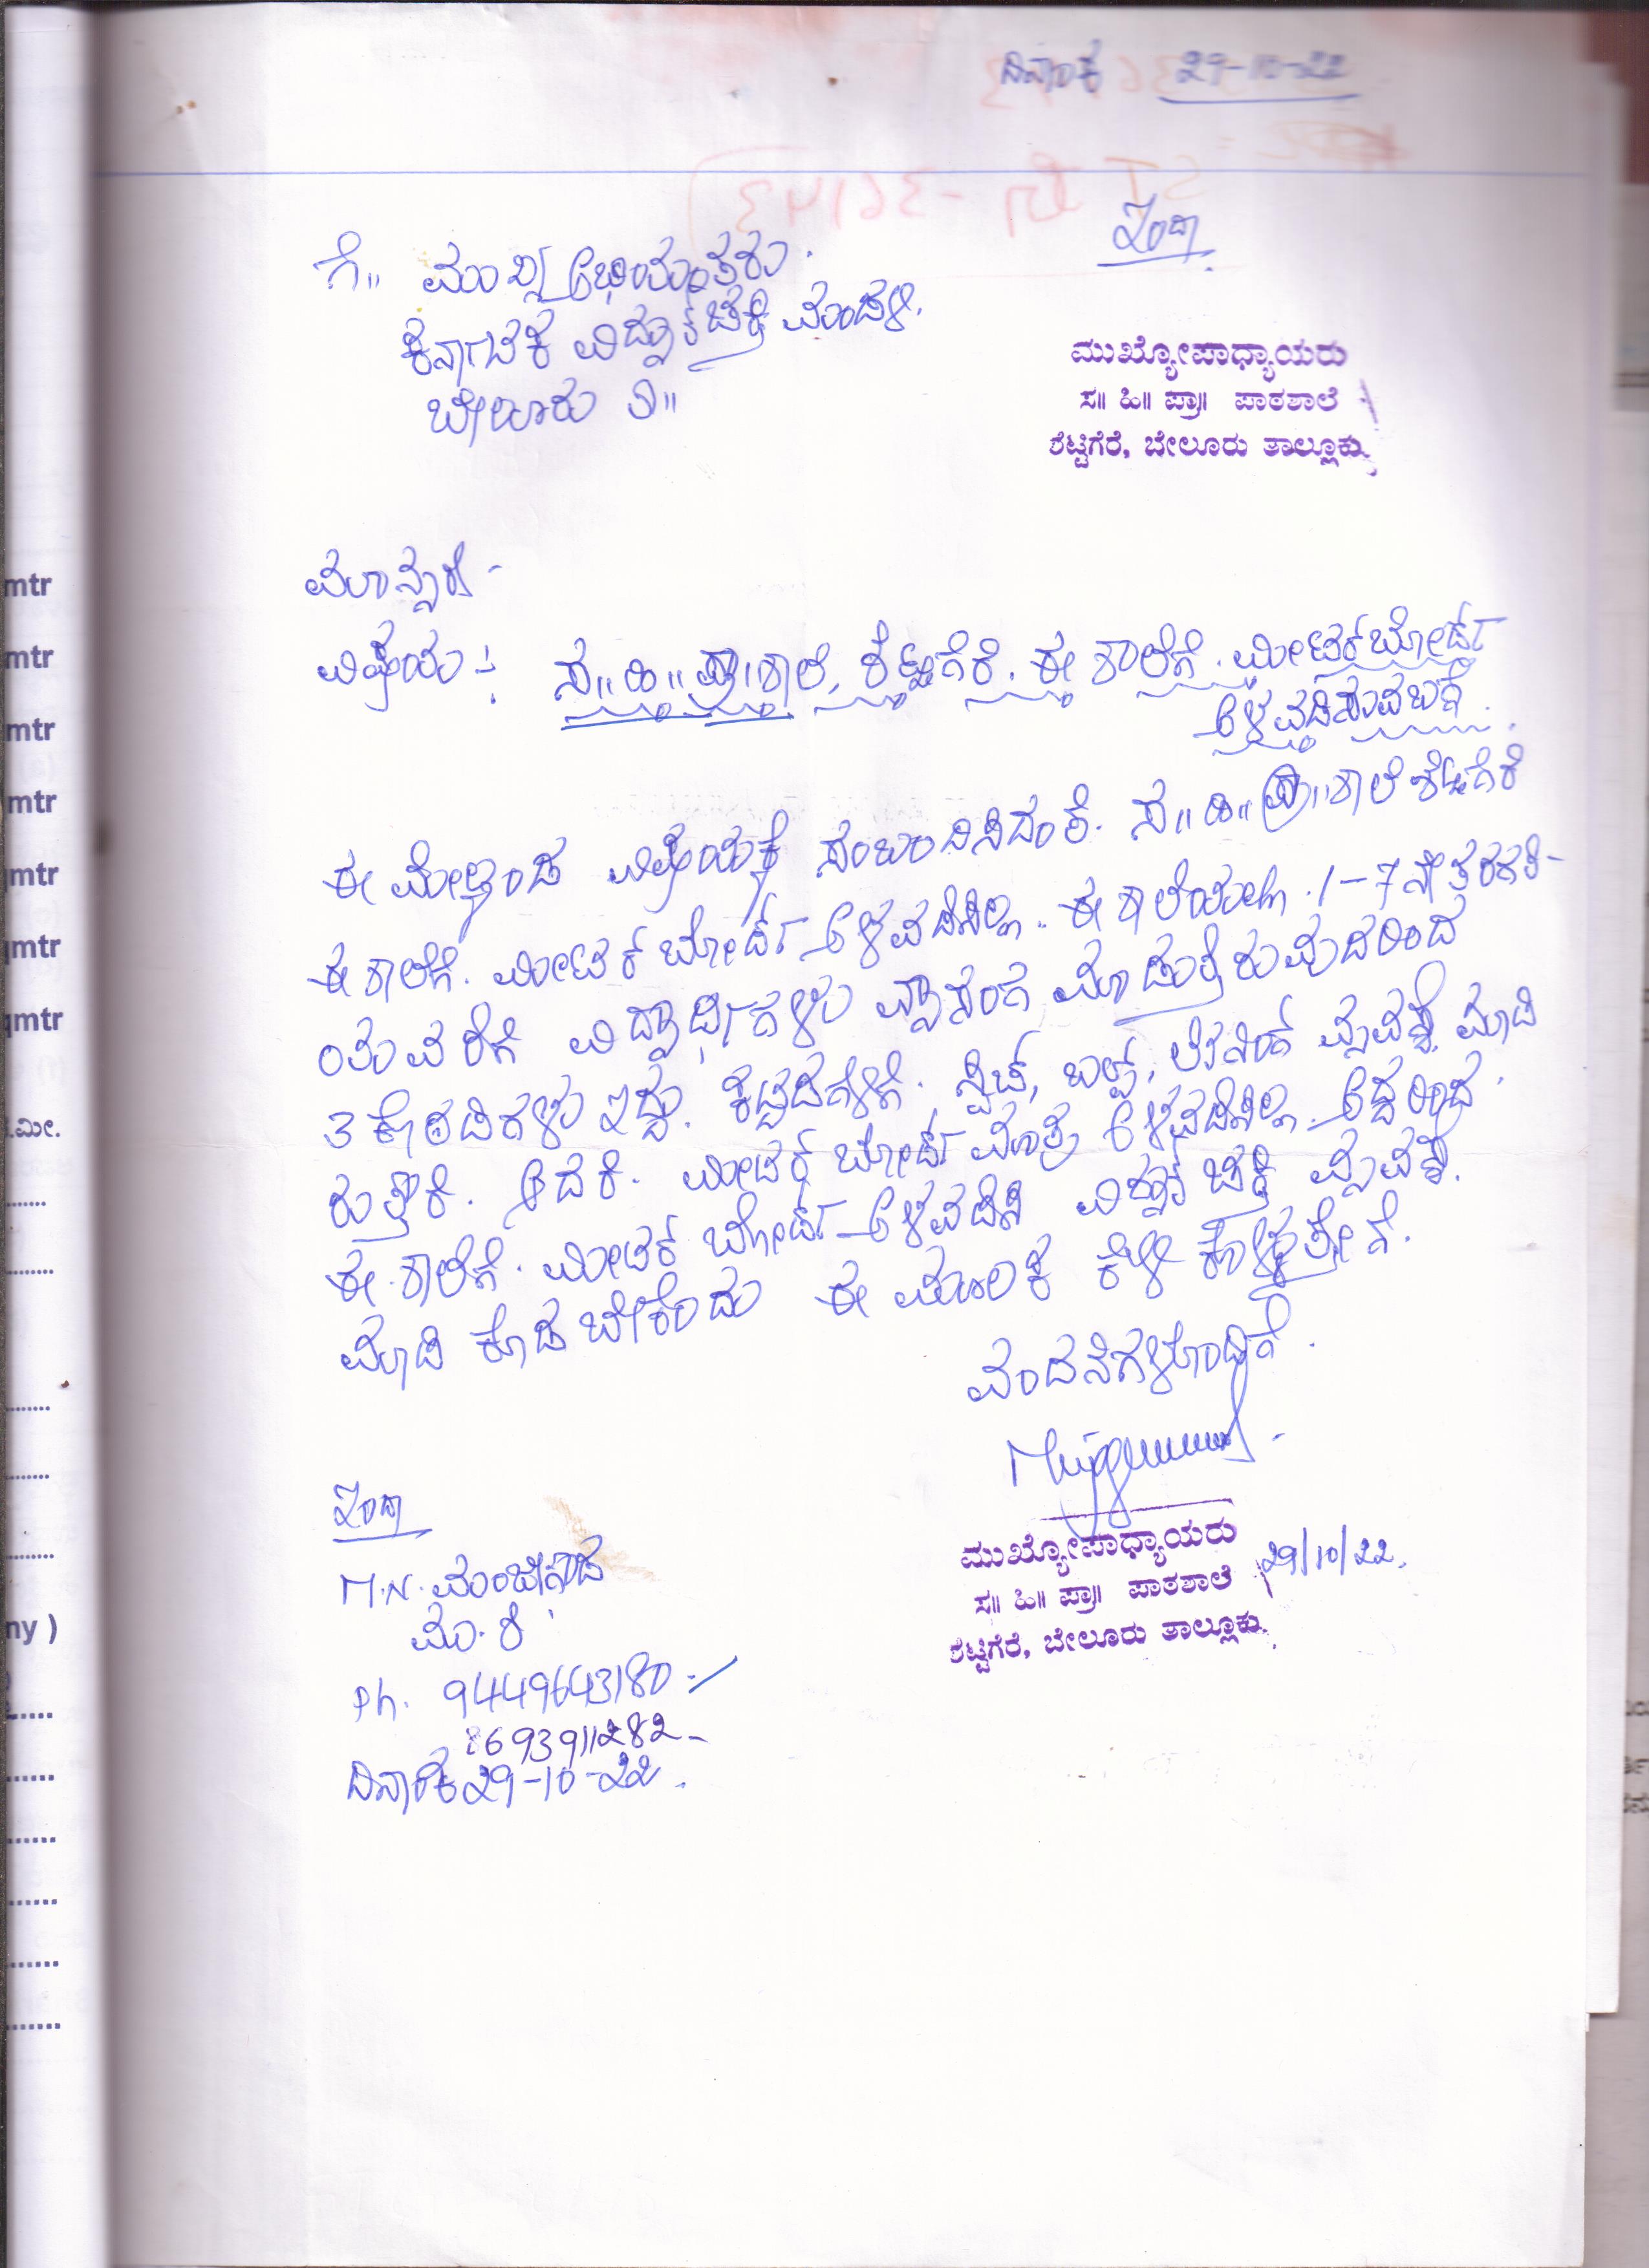 ದಿನಾಂಕ 29-10-22
ಇಂದಾ
ಗೆ॥ ಮುಖ್ಯ ಅಭಿಯಂತರು.
ಕರ್ನಾಟಕ ವಿದ್ಯುತ್ ಚಕ್ತಿ ಮಂಡಳಿ.
ಬೇಲೂರು ತಾ॥
ಮುಖ್ಯೋಪಾಧ್ಯಾಯರು
ಸ॥ ಹಿ॥ ಪ್ರಾ॥ ಪಾಠಶಾಲೆ
ಶೆಟ್ಟಿಗೆರೆ, ಬೇಲೂರು ತಾಲ್ಲೂಕು
ಮಾನ್ಯರೆ -
ವಿಷಯ :- ಸ॥ ಹಿ॥ ಪ್ರಾ॥ ಶಾಲೆ, ಶೆಟ್ಟಿಗೆರೆ. ಈ ಶಾಲೆಗೆ. ಮೀಟರ್ ಬೋರ್ಡ್
ಅಳವಡಿಸುವ ಬಗ್ಗೆ.
ಈ ಮೇಲ್ಕಂಡ ವಿಷಯಕ್ಕೆ ಸಂಬಂದಿಸಿದಂತೆ. ಸ॥ ಹಿ॥ ಪ್ರಾ॥ ಶಾಲೆ ಶೆಟ್ಟಿಗೆರೆ
ಈ ಶಾಲೆಗೆ. ಮೀಟರ್ ಬೋರ್ಡ್ ಅಳವಡಿಸಿಲ್ಲ. ಈ ಶಾಲೆಯಲ್ಲಿ. 1-7 ನೇ ತರಗತಿ-
ಯುವರೆಗೆ ವಿದ್ಯಾರ್ಥಿಗಳು ವ್ಯಾಸಂಗ ಮಾಡುತ್ತಿರುವುದರಿಂದ
3 ಕೊಠಡಿಗಳು ಇದ್ದು. ಕಟ್ಟಡಗಳಿಗೆ. ಸ್ವಿಚ್, ಬಲ್ಪ್, ವ್ಯವಸ್ಥೆ ಮಾಡಿ
ರುತ್ತಾರೆ. ಆದರೆ. ಮೀಟರ್ ಬೋರ್ಡ್ ಮಾತ್ರ ಅಳವಡಿಸಿಲ್ಲ. ಆದ್ದರಿಂದ.
ಈ ಶಾಲೆಗೆ. ಮೀಟರ್ ಬೋರ್ಡ್ ಅಳವಡಿಸಿ ವಿದ್ಯುತ್ ಚಕ್ತಿ ವ್ಯವಸ್ಥೆ.
ಮಾಡಿ ಕೊಡಬೇಕೆಂದು ಈ ಮೂಲಕ ಕೇಳಿಕೊಳ್ಳುತ್ತೇನೆ.
ವಂದನೆಗಳೊಂದಿಗೆ.
ಮುಖ್ಯೋಪಾಧ್ಯಾಯರು
ಸ॥ ಹಿ॥ ಪ್ರಾ॥ ಪಾಠಶಾಲೆ
ಶೆಟ್ಟಿಗೆರೆ, ಬೇಲೂರು ತಾಲ್ಲೂಕು
29/10/22.
ಇಂದಾ
M.N. ಮಂಜೇಗೌಡ
ಮು. ಶಿ
Ph. 9449643180
8693911282
ದಿನಾಂಕ 29-10-22.
mtr
mtr
mtr
mtr
mtr
mtr
qmtr
.ಮೀ.
ny )